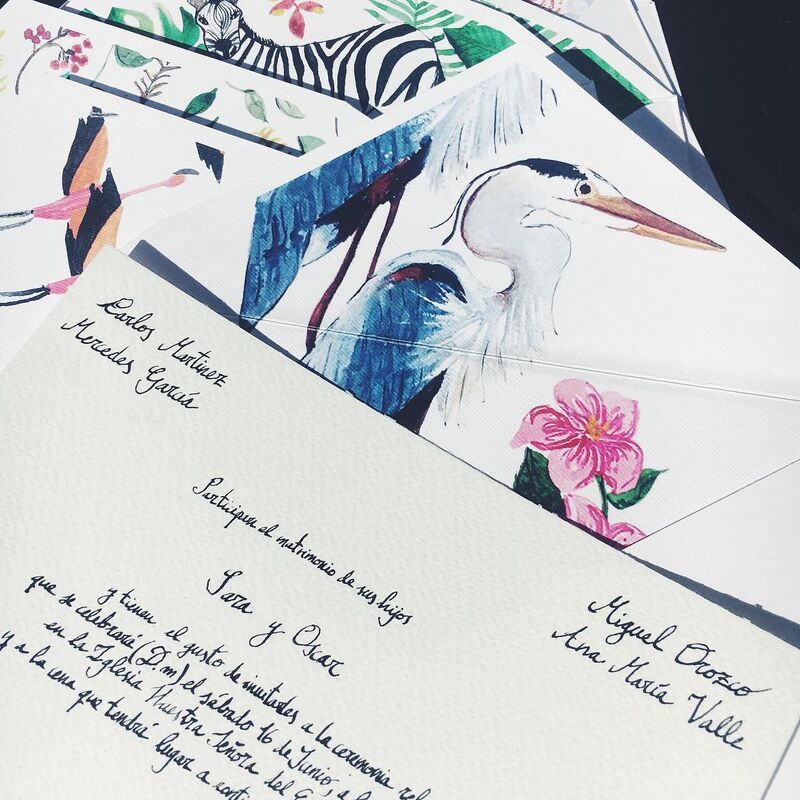 Carlos Martinez
Mercedes García
Participan el matrimonio de sus hijos
Sara y Oscar
Miguel Orozco
Ana María Valle
y tienen el gusto de invitarles a la ceremonia
que se celebrará (D.m) el sábado 16 de Junio, a
en la Iglesia Nuestra Señora del
y a la cena que tendrá lugar a